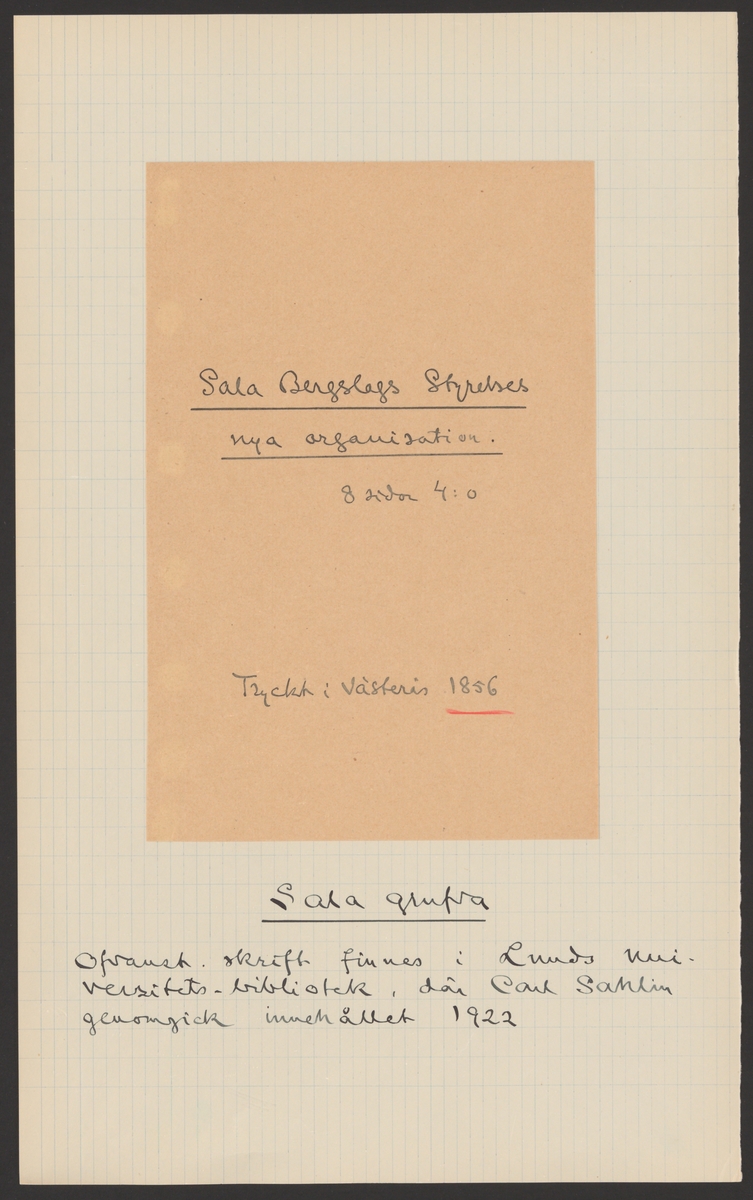 Sala Bergslags Styrelses
nya organisation.
8 sidor 4:o
Tryckt i Västerås 1856
Sala grufva
Ofvanst. skrift finnes i Lunds uni-
versitets-bibliotek, där Carl Sahlin
genomgick innehållet 1922